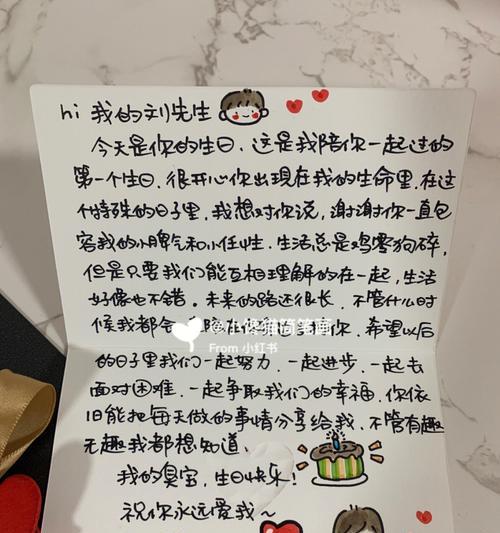 hi 我的刘先生
今天是你的生日、这是我陪你一起过的
第一个生日、很开心你出现在我的生命里、在这
个特殊的日子里、我想对你说，谢谢你一直包
容我的小脾气和小任性、生活总是鸡零狗碎，
但是只要我们能互相理解的在一起，生活
好像也不错。未来的路还很长、不管什么时
候我都会
你、希望以后
简笔画
From 小红书
的日子里我们一起努力、一起进步、一起去
面对困难、一起争取我们的幸福、你依
旧能把每天做的事情分享给我、不管有趣
无趣我都想知道、
我的臭宝，生日快乐！
祝你永远爱我～